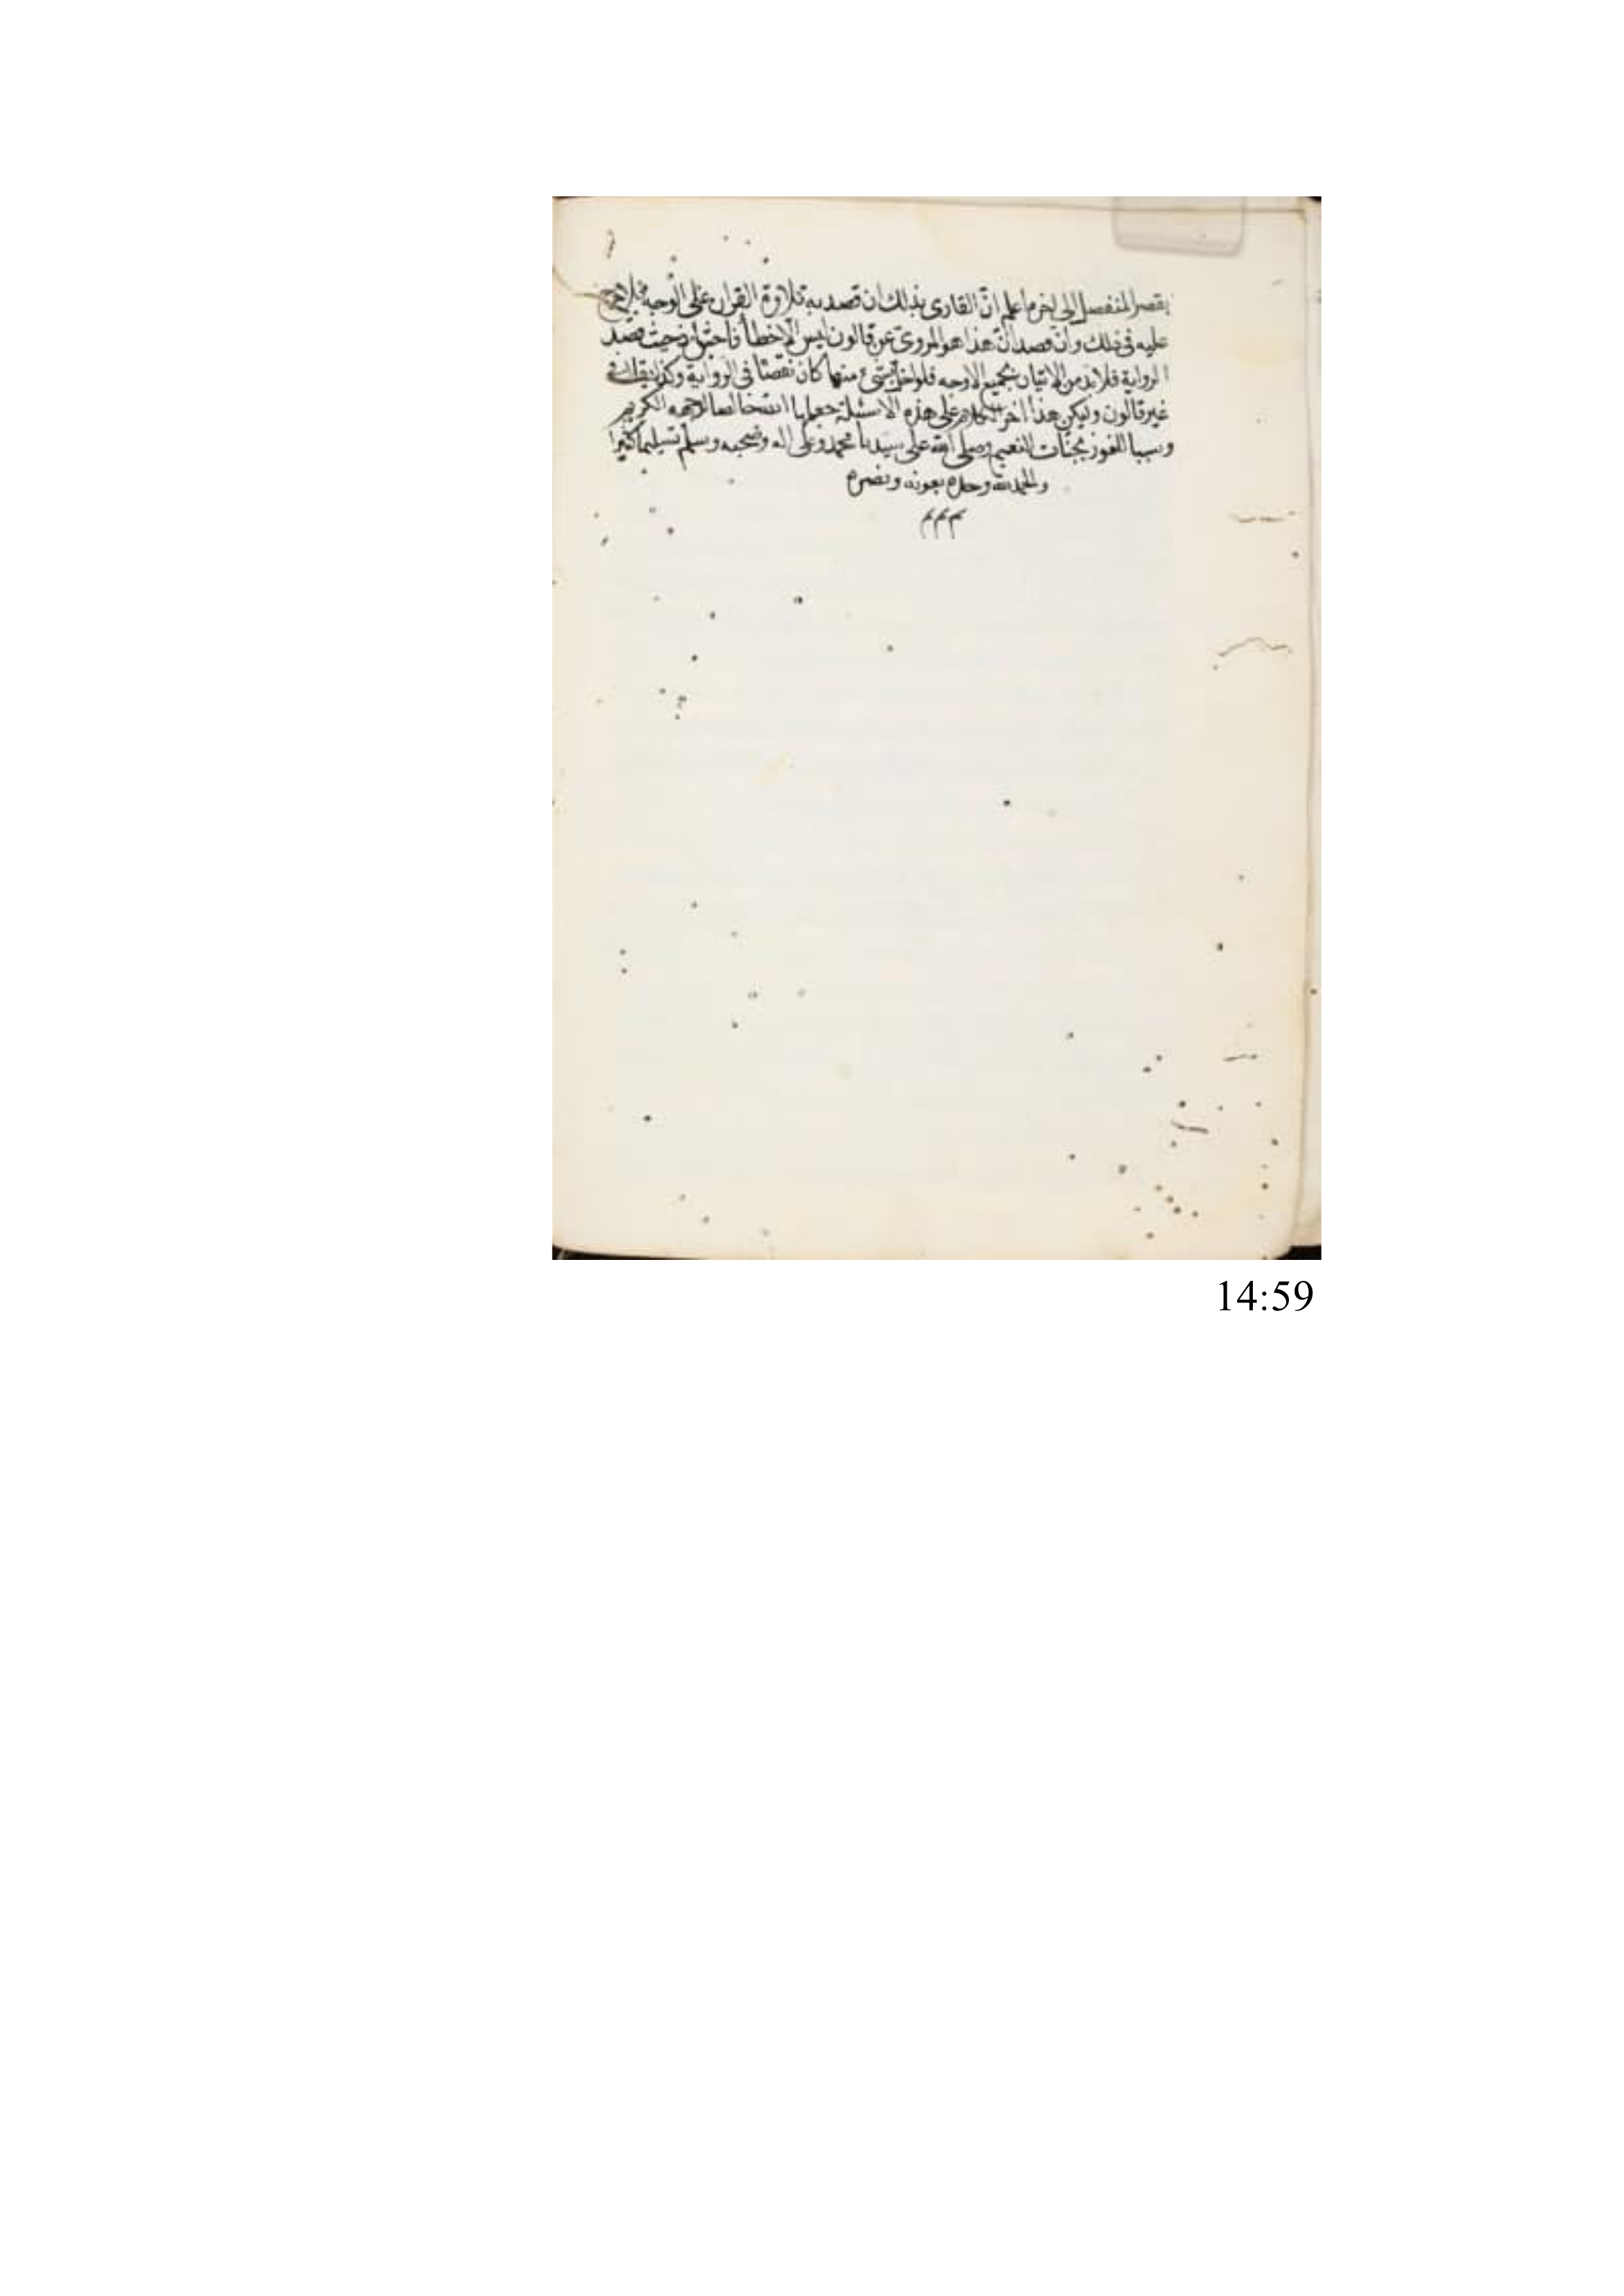 بقصر المنفصل الى اخره اعلم ان القارى بذلك ان قصد به تلاوة القران على الوجه فلا حرج
عليه فى ذلك وان قصد ان هذا هو المروى عن قالون ليس الا خطأ فاحش وحيث قصد
الرواية فلا بد من الاتيان بجميع الاوجه فلو اخل بشىء منها كان نقصا فى الرواية وكذا يقال فى
غير قالون وليكن هذا اخر الكلام على هذه الاسئلة جعلها الله خالصا لوجهه الكريم
وسببا للفوز بجنات النعيم وصلى الله على سيدنا محمد وعلى اله وصحبه وسلم تسليما كثيرا
والحمد لله وحده بعونه ونصره
م م م
14:59